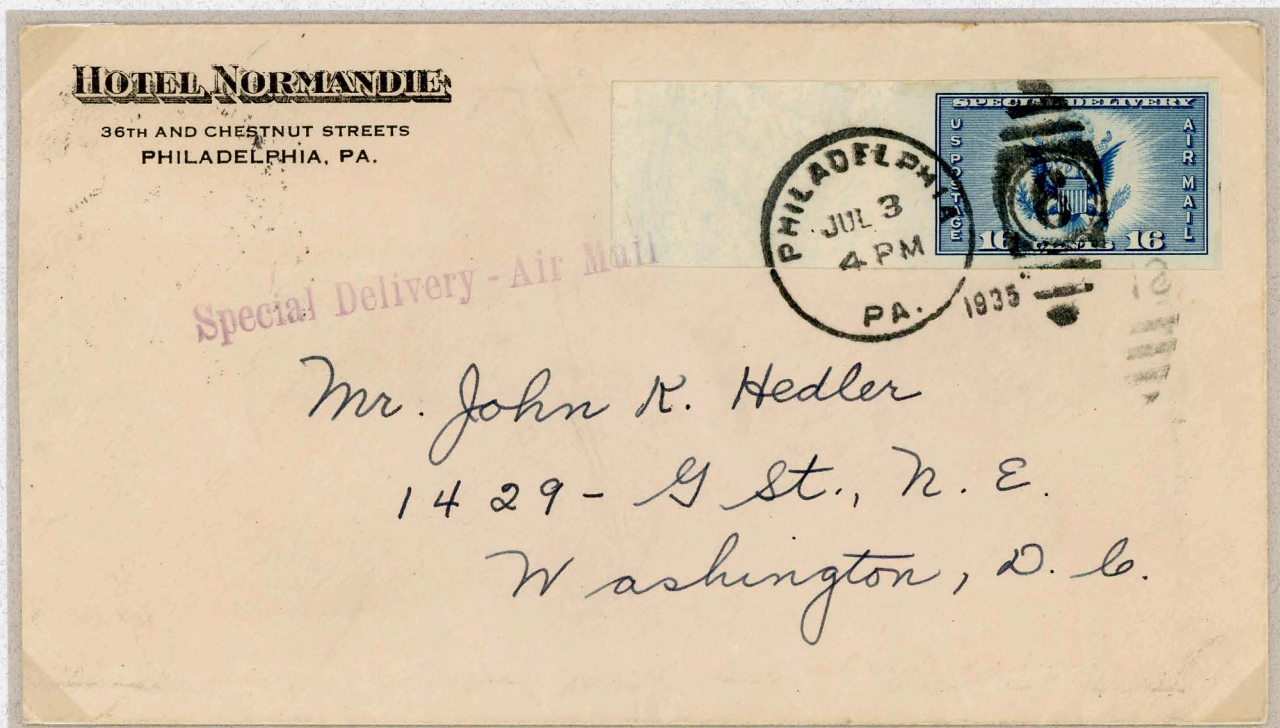 HOTEL NORMANDIE
36TH AND CHESTNUT STREETS
PHILADELPHIA, PA.
SPECIAL DELIVERY
U S POSTAGE
AIR MAIL
16 16
PHILADELPHIA
JUL 3
4 PM
PA.
1935
6
Special Delivery - Air Mail
Mr. John K. Hedler
1429 - G St., N. E.
Washington, D. C.